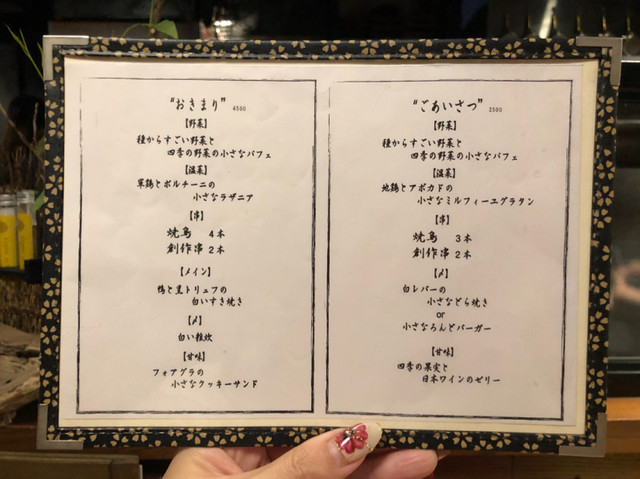 “おきまり” 4500
【野菜】
種からすごい野菜と
四季の野菜の小さなパフェ
【温菜】
軍鶏とポルチーニの
小さなラザニア
【串】
焼鳥 4本
創作串 2本
【メイン】
鴨と黒トリュフの
白いすき焼き
【〆】
白い雑炊
【甘味】
フォアグラの
小さなクッキーサンド
“ごあいさつ” 3500
【野菜】
種からすごい野菜と
四季の野菜の小さなパフェ
【温菜】
地鶏とアボカドの
小さなミルフィーユグラタン
【串】
焼鳥 3本
創作串 2本
【〆】
白レバーの
小さなどら焼き
or
小さならんどバーガー
【甘味】
四季の果実と
日本ワインのゼリー